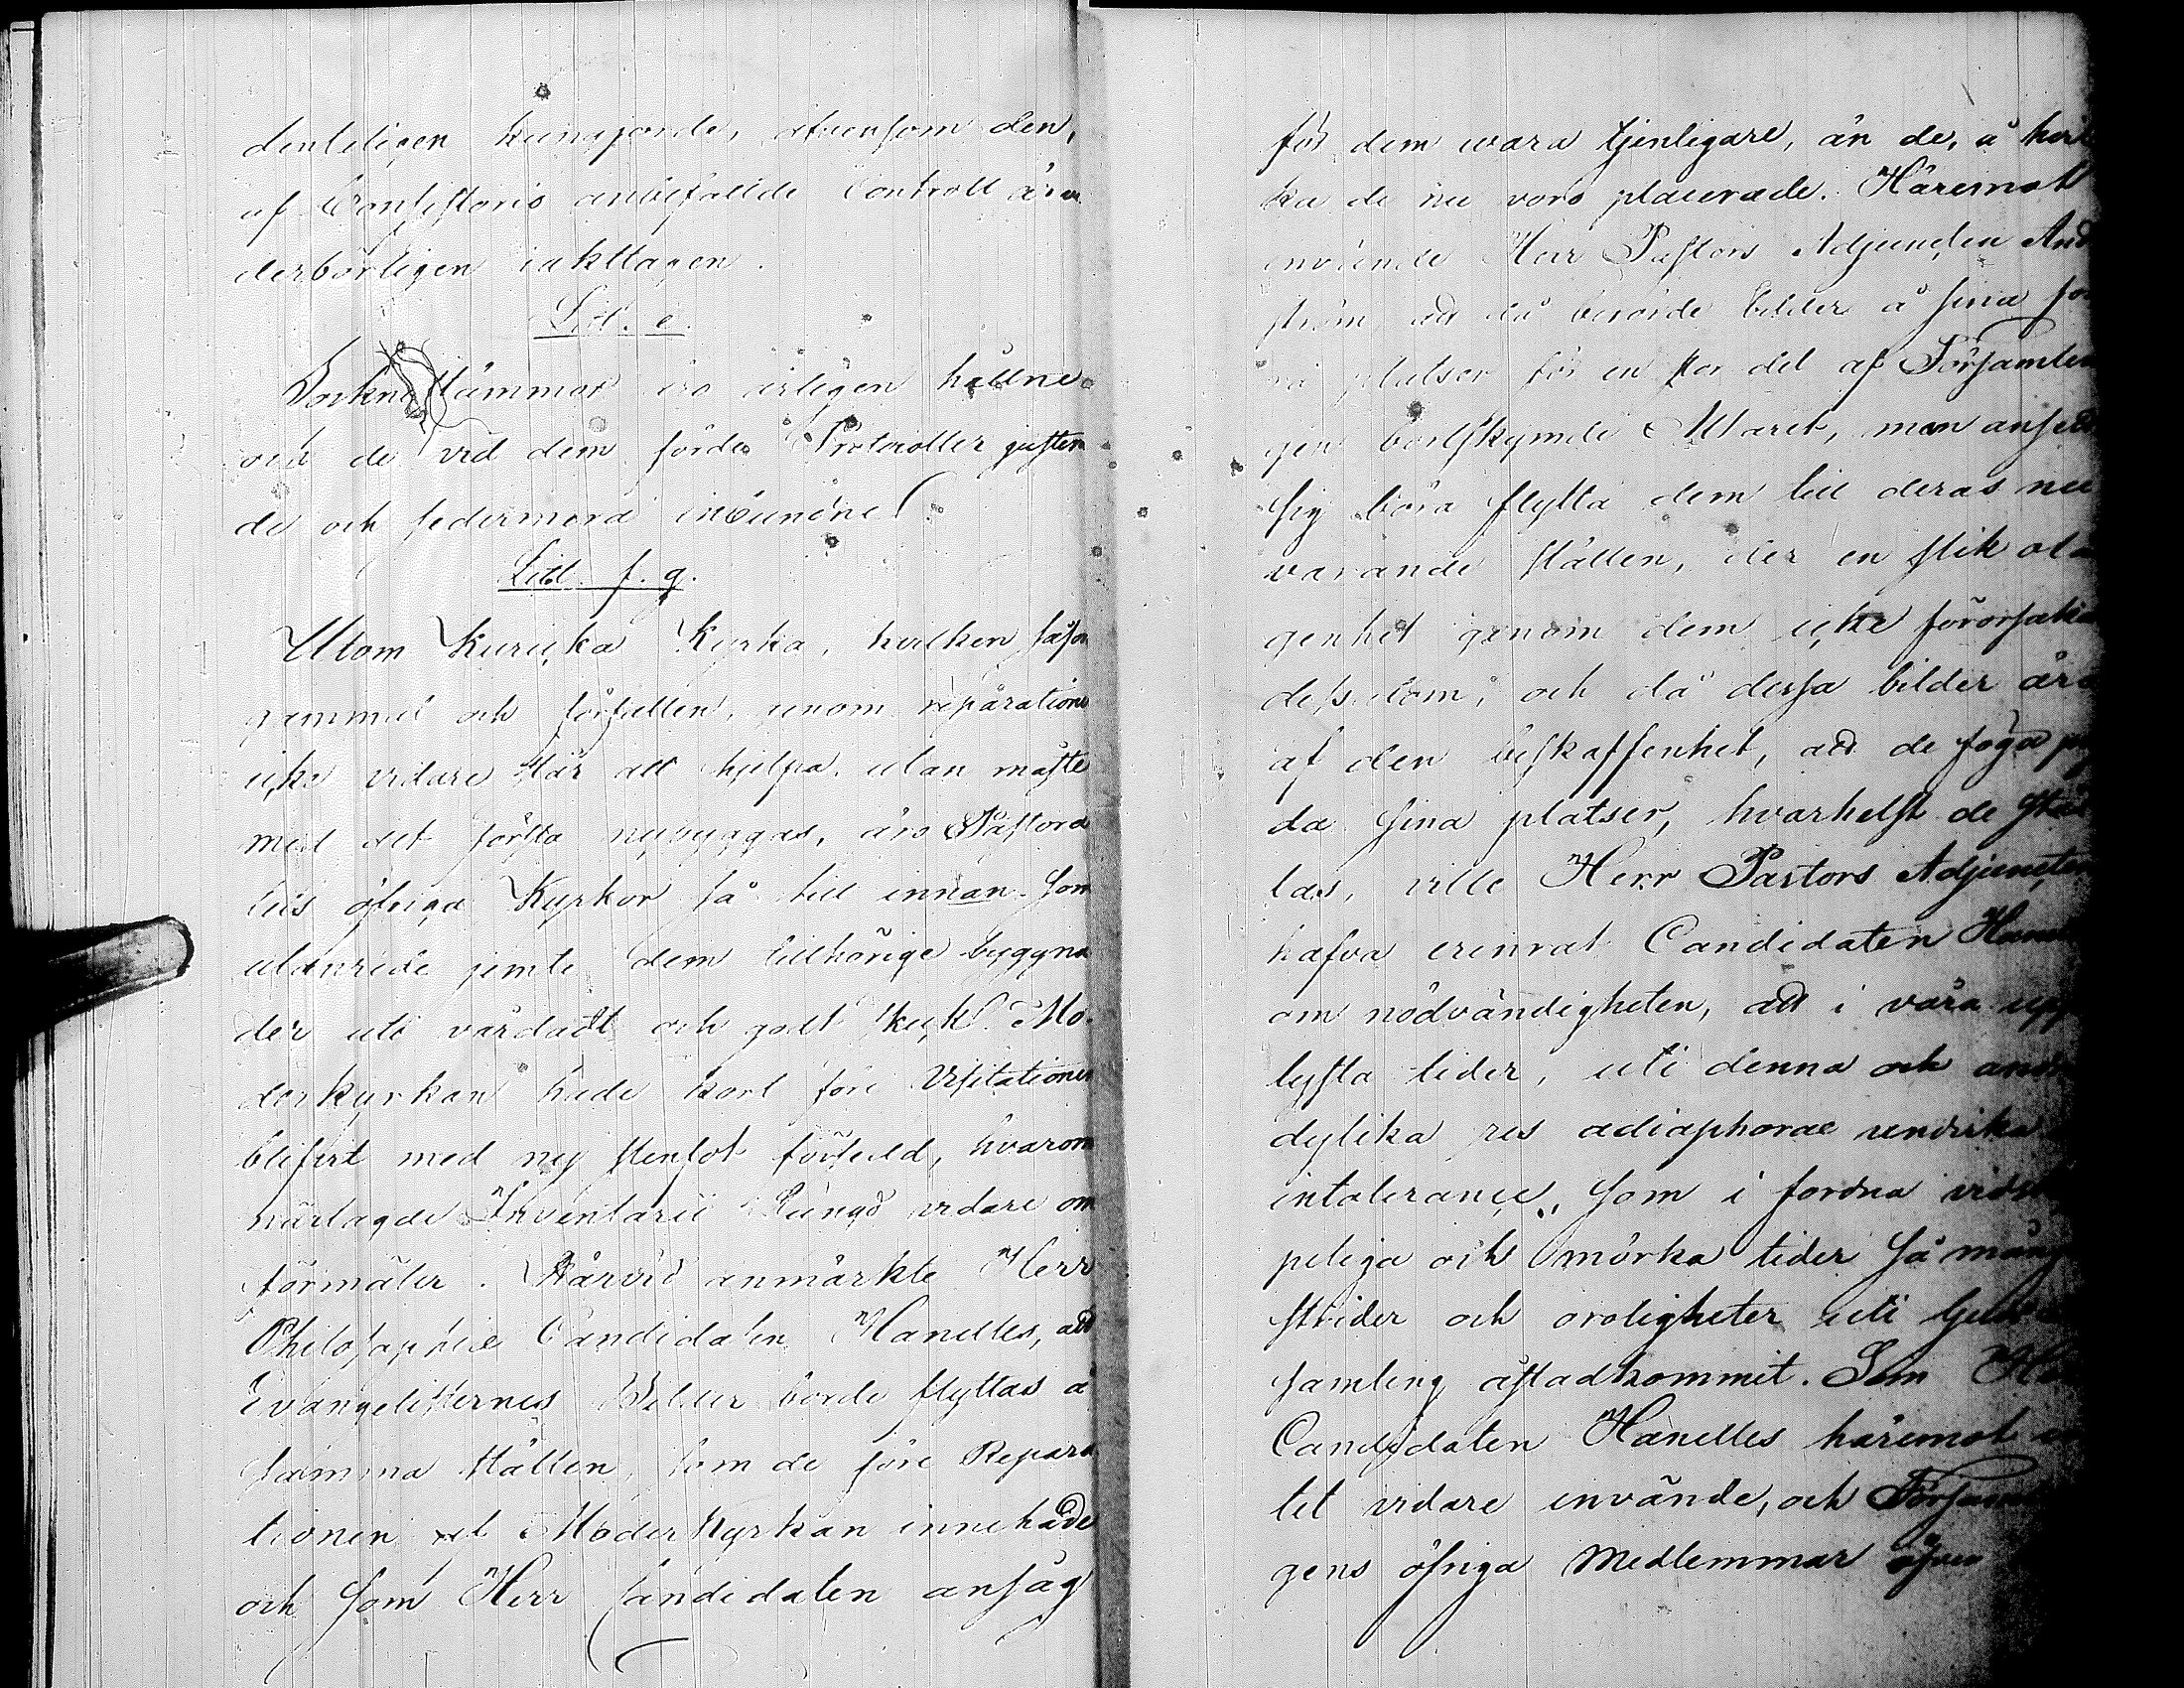 denteligen kungjorde, äfvensom den,
af Consistorio anbefallde Controll är
derbörligen iakttagen.
Litt. e.
Sockne stämmor äro årligen hållne
och de vid dem förde Protocoller justera
de och sedermera inbundne.
Litt. f. g.
Utom Kuricka Kyrka, hvilken såsom
gammal och förfallen, genom reparation
icke vidare står att hjelpa, utan måste
med det första nybyggas, äro Pastora
tets öfriga Kyrkor så till innan- som
utanrede jemte dem tillhörige byggna
der uti vårdadt och godt skick. Mo-
derkyrkan hade kort före Visitationen
blifvit med ny stenfot försedd, hvarom
närlagde Inventarii Längd vidare om
förmäler. Härvid anmärkte Herr
Philosophiæ Candidaten Hanelles, att
Evangelisternes Bilder borde flyttas å
samma ställen, som de före Repara
tionen af Moderkyrkan innehade
och som Herr Candidaten ansåg
för dem wara tjenligare, än de, å hvil
ka de nu voro placerade. Häremot
invände Herr Pastors Adjuncten And
ström att då berörde bilder å sina för
ra platser för en stor del af Församlin
gen bortskymde Altaret, man ansedt
sig böra flytta dem till deras nu
varande ställen, der en slik olä
genhet genom dem icke förorsaka
des dem, och då dessa bilder äro
af den beskaffenhet, att de föga pry
da sina platser, hvarhelst de stäl
las, ville Herr Pastors Adjuncten
hafva erinrat Candidaten Hanel
om nödvändigheten, att i våra upp
lysta tider, uti denna och andra
dylika res adiaphorae undvika
intolerance, som i fordna vidske
peliga och mörka tider så många
strider och oroligheter uti Guds
samling åstadkommit. Som Herr
Candidaten Hanelles häremot in
tet vidare invände, och Församlin
gens öfriga Medlemmar äfven